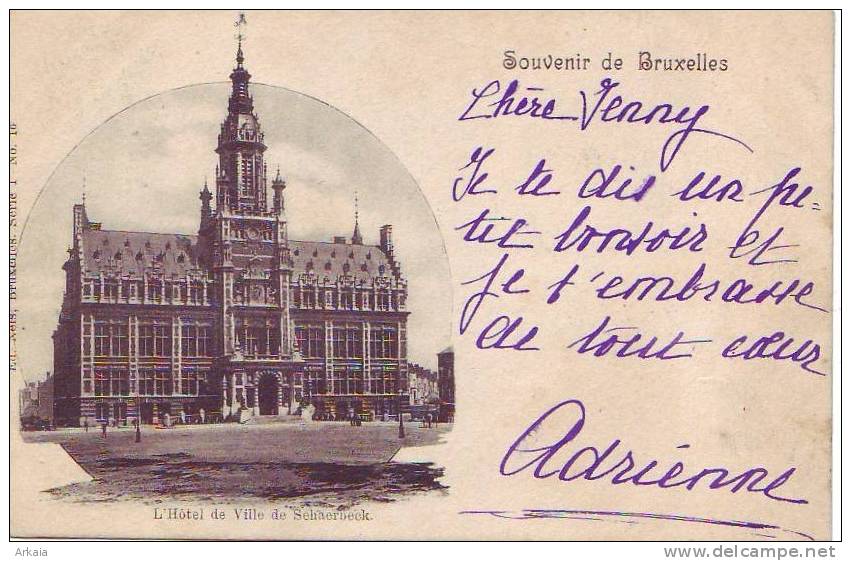 Souvenir de Bruxelles
Chère Jenny
Je te dis un pe-
tit bonsoir et
je t'embrasse
de tout cœur
Adrienne
L'Hôtel de Ville de Schaerbeck.
Ed. Nels, Bruxelles. Série 1 No. 16
Arkaia
http://www.delcampe.net